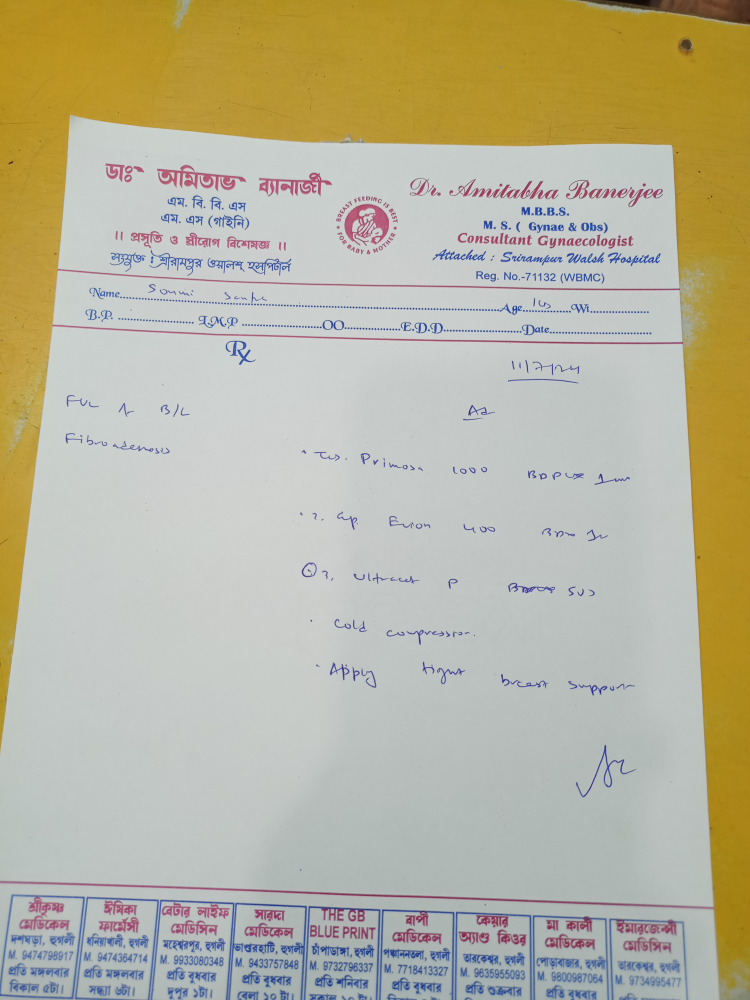 ডাঃ অমিতাভ ব্যানার্জী
এম. বি. বি. এস
এম. এস (গাইনি)
।। প্রসূতি ও স্ত্রীরোগ বিশেষজ্ঞ ।।
সংযুক্ত : শ্রীরামপুর ওয়ালশ্ হসপিটাল
BREAST FEEDING IS BEST
FOR BABY & MOTHER
Dr. Amitabha Banerjee
M.B.B.S.
M. S. ( Gynae & Obs)
Consultant Gynaecologist
Attached : Srirampur Walsh Hospital
Reg. No.-71132 (WBMC)
Name Soumi Age Wt
B.P. L.M.P OO E.D.D Date
Rx
11/7/24
FUC B/L
Fibroadenosis
Adv
Primosa 1000
Cap. Evion 400
Ultracet P
Cold compression.
Apply tight breast support
শ্রীকৃষ্ণ মেডিকেল
দশঘড়া, হুগলী
M. 9474798917
প্রতি মঙ্গলবার
বিকাল ৫টা।
ঈষিকা ফার্মেসী
ধনিয়াখালী, হুগলী
M. 9474364714
প্রতি মঙ্গলবার
সন্ধ্যা ৬টা।
বেটার লাইফ মেডিসিন
মহেশ্বরপুর, হুগলী
M. 9933080348
প্রতি বুধবার
দুপুর ১টা।
সারদা মেডিকেল
ভাণ্ডারহাটি, হুগলী
M. 9433757848
প্রতি বুধবার
বেলা ১০ টা।
THE GB BLUE PRINT
চাঁপাডাঙ্গা, হুগলী
M. 9732796337
প্রতি শনিবার
সকাল
বাপী মেডিকেল
M. 7718413327
প্রতি বুধবার
কেয়ার অ্যাণ্ড কিওর
তারকেশ্বর, হুগলী
M. 9635955093
প্রতি শুক্রবার
মা কালী মেডিকেল
পোড়াবাজার, হুগলী
M. 9800987064
প্রতি বুধবার
ইমারজেন্সী মেডিসিন
তারকেশ্বর, হুগলী
M. 9734995477
প্রতি বুধবার